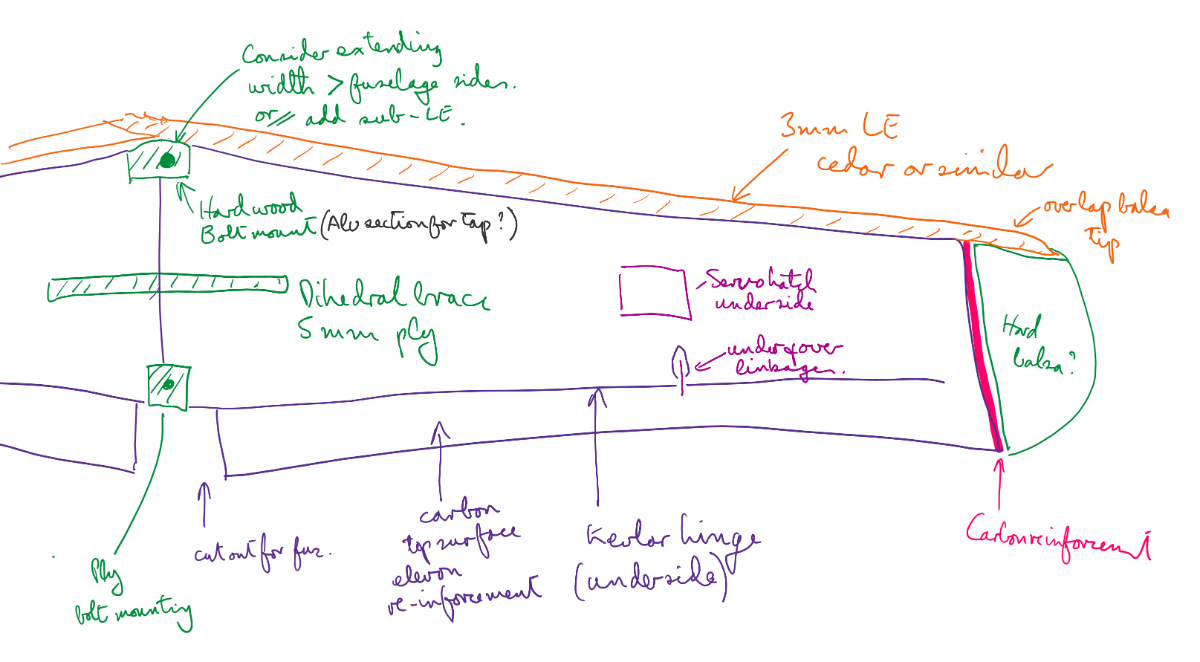 Consider extending
width > fuselage sides.
or // add sub-LE.
3mm LE
cedar or similar
overlap balsa
tip
Hardwood
Bolt mount (Alu section for tap?)
Servo hatch
underside
Dihedral brace
5mm ply
Hard
balsa?
under & over
linkages.
carbon
top surface
elevon
re-inforcement
Kevlar hinge
(underside)
Carbon reinforcement
cut out for fus.
Ply
bolt mounting